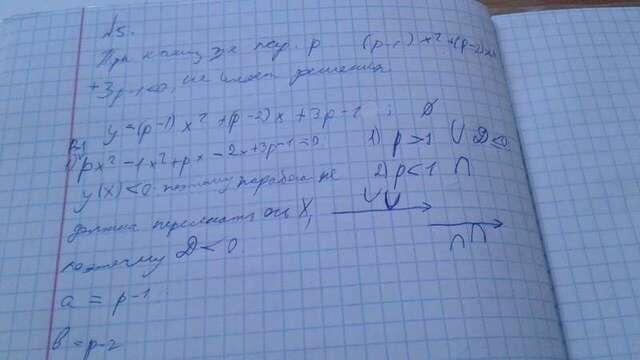 №5.
При каких зн. пар. p (p-1)x²+(p-2)x
+3p-1<0, не имеет решения
y=(p-1)x²+(p-2)x+3p-1 ; ∅
px²-1x²+px-2x+3p-1=0 1) p>1 ∪ D≤0
y(x)<0 поэтому парабола не 2) p<1 ∩
должна пересекать ось X,
поэтому D<0.
a = p-1
b=p-2